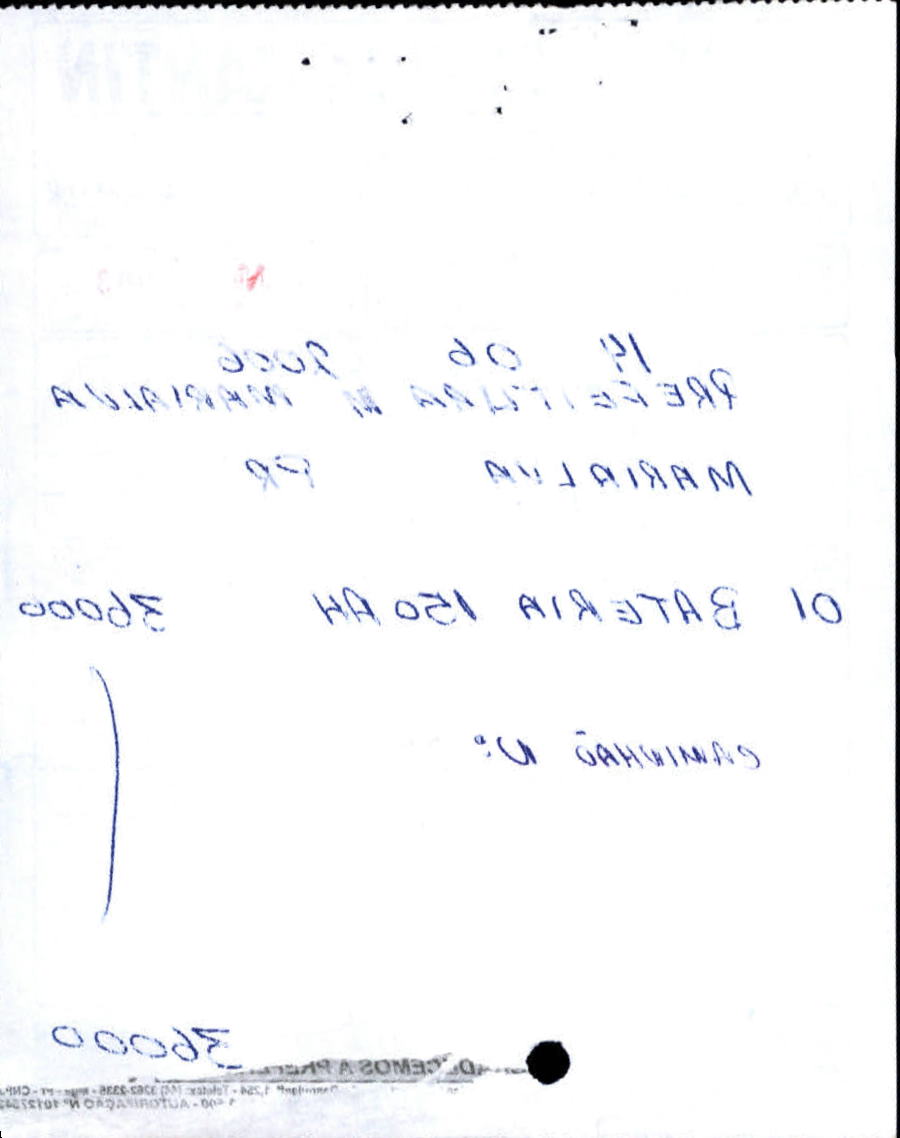 14 06 2006
PREFEITURA M MARIALVA
MARIALVA PR
01 BATERIA 150 AH 36000
CAMINHÃO Nº
36000
DECEMOS A PREFE
1,254 - Telefax: (44) 3262-2335
AUTORIZAÇÃO Nº